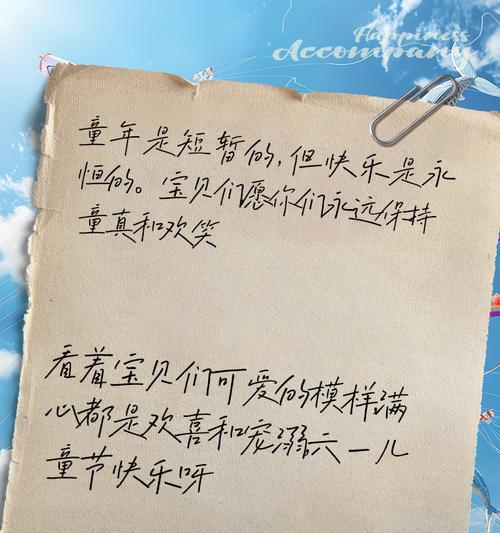 Happiness
Accompany
童年是短暂的,但快乐是永
恒的。宝贝们愿你们永远保持
童真和欢笑
看着宝贝们可爱的模样满
心都是欢喜和宠溺六一儿
童节快乐呀